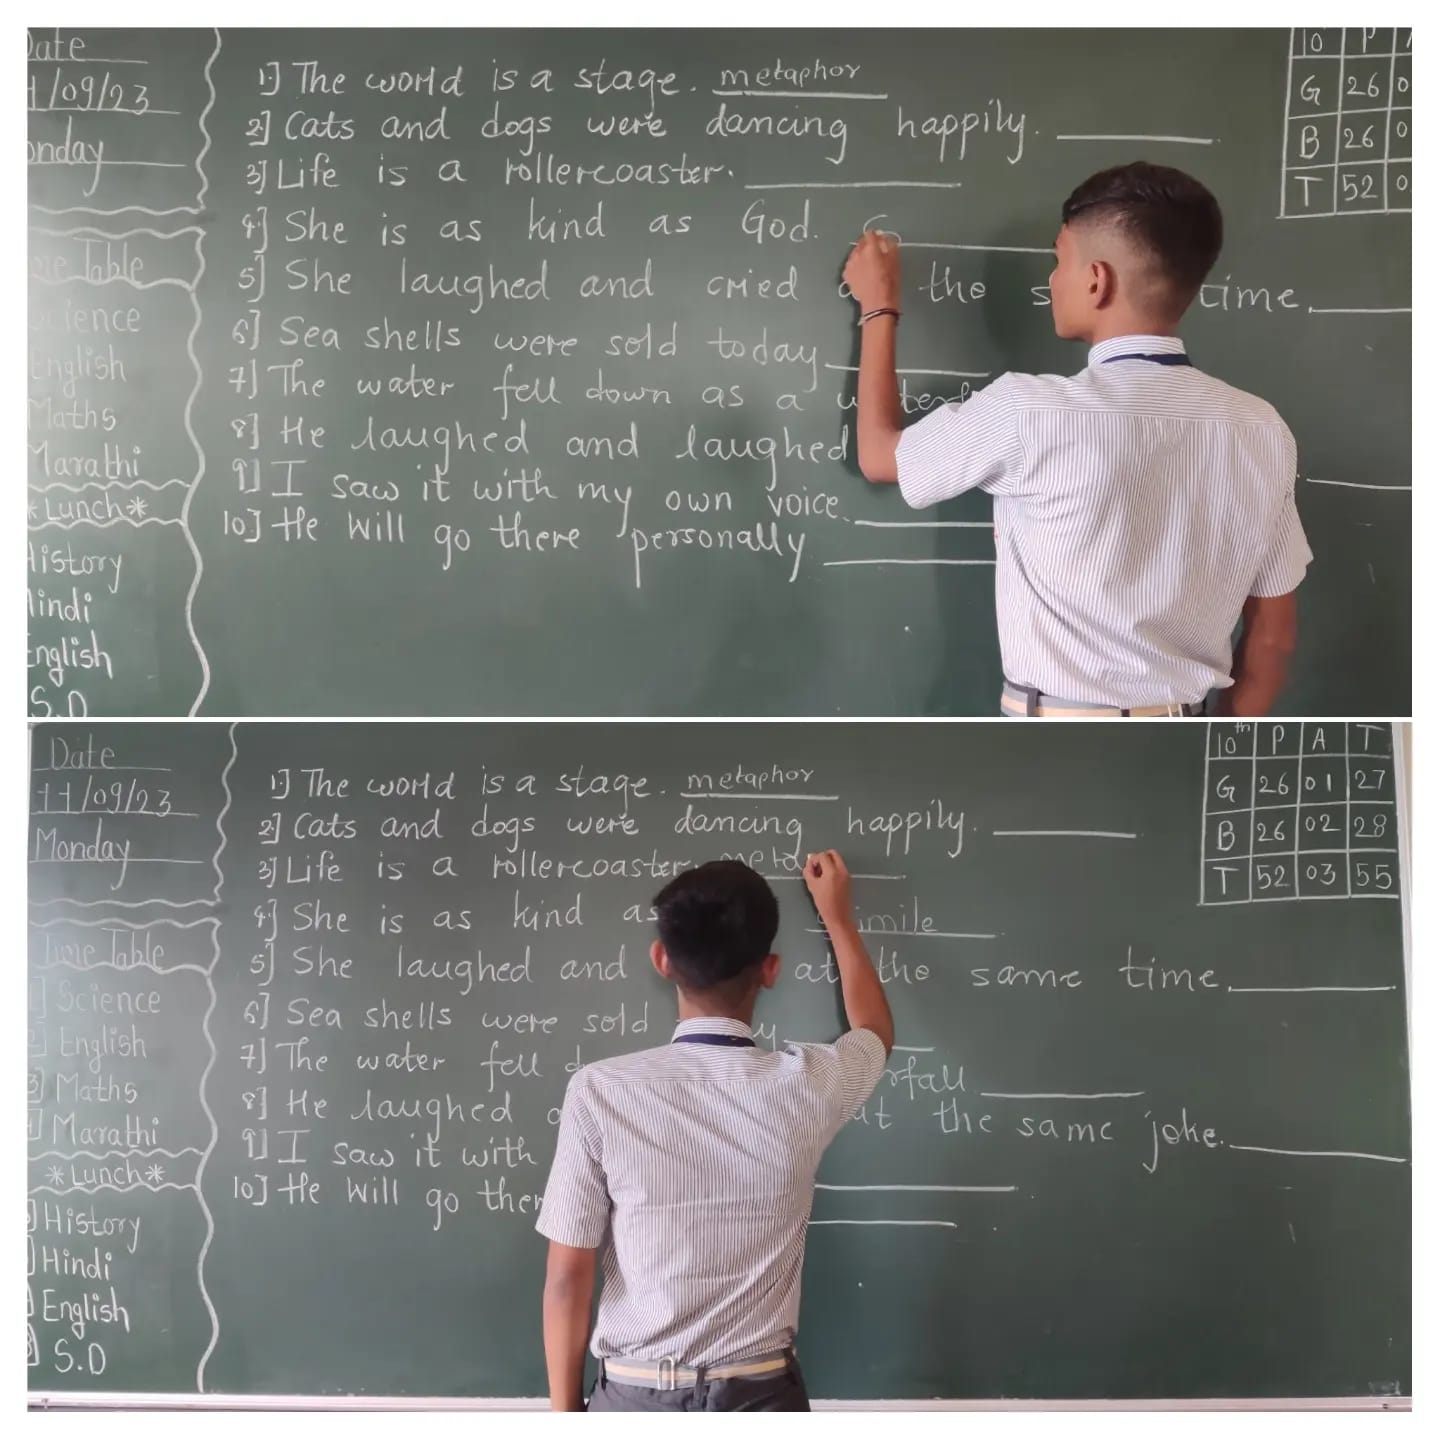 Date
1/09/23
onday
Table
Science
English
Maths
Marathi
*Lunch*
History
Hindi
English
S.D
1.] The world is a stage. metaphor
2.] Cats and dogs were dancing happily.
3.] Life is a rollercoaster.
4.] She is as kind as God.
5.] She laughed and cried the time.
6.] Sea shells were sold today
7.] The water fell down as a
8.] He laughed and laughed
9.] I saw it with my own voice.
10.] He will go there personally
10 P
G 26 0
B 26 0
T 52 0
Date
11/09/23
Monday
Time Table
1] Science
2] English
3] Maths
4] Marathi
*Lunch*
] History
] Hindi
] English
] S.D
1.] The world is a stage. metaphor
2.] Cats and dogs were dancing happily.
3.] Life is a rollercoaster. meta
4.] She is as kind as simile
5.] She laughed and at the same time.
6.] Sea shells were sold
7.] The water fell rfall
8.] He laughed at the same joke.
9.] I saw it with
10.] He will go ther
10th P A T
G 26 01 27
B 26 02 28
T 52 03 55